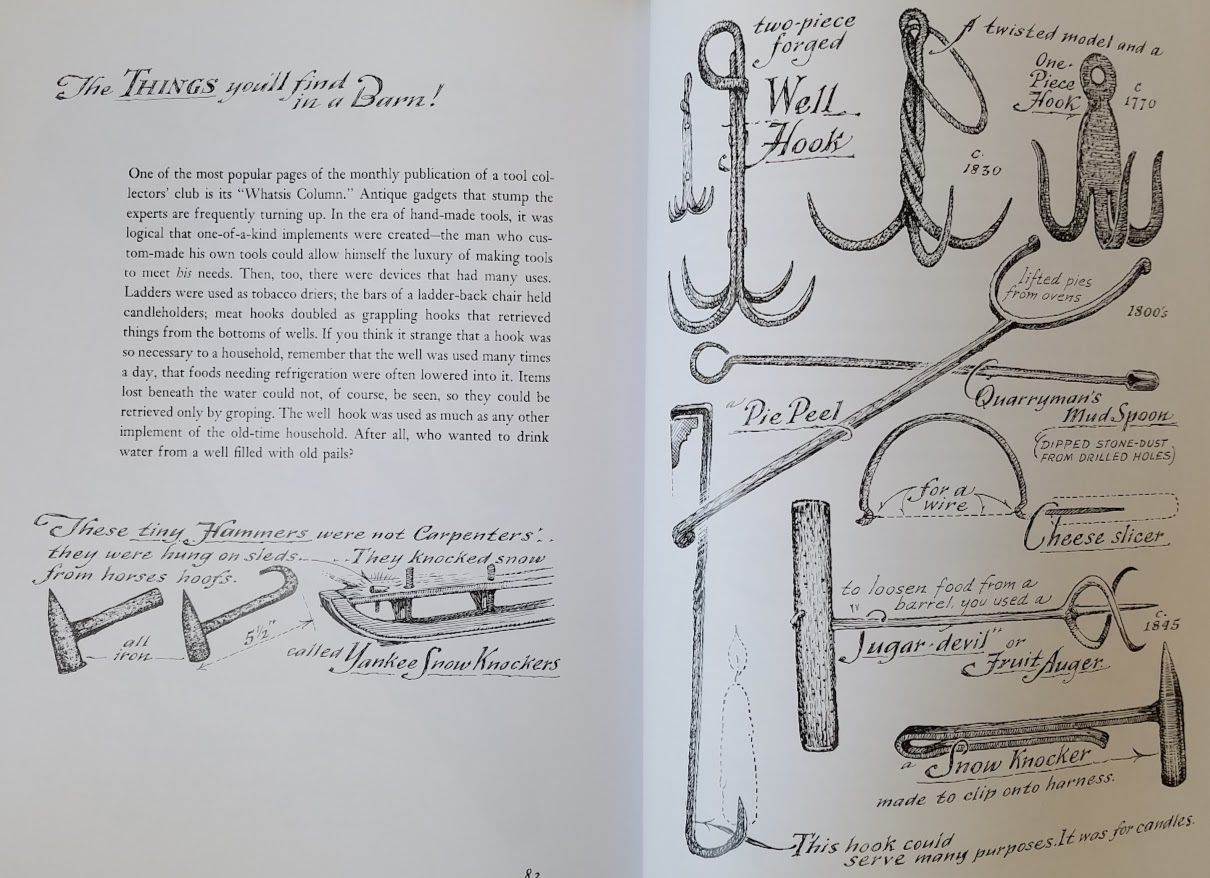 The THINGS you'll find
in a Barn!
One of the most popular pages of the monthly publication of a tool col-
lectors' club is its “Whatsis Column.” Antique gadgets that stump the
experts are frequently turning up. In the era of hand-made tools, it was
logical that one-of-a-kind implements were created—the man who cus-
tom-made his own tools could allow himself the luxury of making tools
to meet his needs. Then, too, there were devices that had many uses.
Ladders were used as tobacco driers; the bars of a ladder-back chair held
candleholders; meat hooks doubled as grappling hooks that retrieved
things from the bottoms of wells. If you think it strange that a hook was
so necessary to a household, remember that the well was used many times
a day, that foods needing refrigeration were often lowered into it. Items
lost beneath the water could not, of course, be seen, so they could be
retrieved only by groping. The well hook was used as much as any other
implement of the old-time household. After all, who wanted to drink
water from a well filled with old pails?
These tiny Hammers were not Carpenters'..
they were hung on sleds.... They knocked snow
from horses hoofs.
all
iron
5½"
called Yankee Snow Knockers
two-piece
forged
Well
Hook
A twisted model and a
One-
Piece
Hook
c
1770
c.
1830
lifted pies
from ovens
1800's
a
Pie Peel
Quarryman's
Mud Spoon
(DIPPED STONE-DUST
FROM DRILLED HOLES)
for a
wire
Cheese slicer
to loosen food from a
barrel, you used a
"Sugar-devil" or
Fruit Auger
c.
1845
a Snow Knocker
made to clip onto harness.
This hook could
serve many purposes. It was for candles.